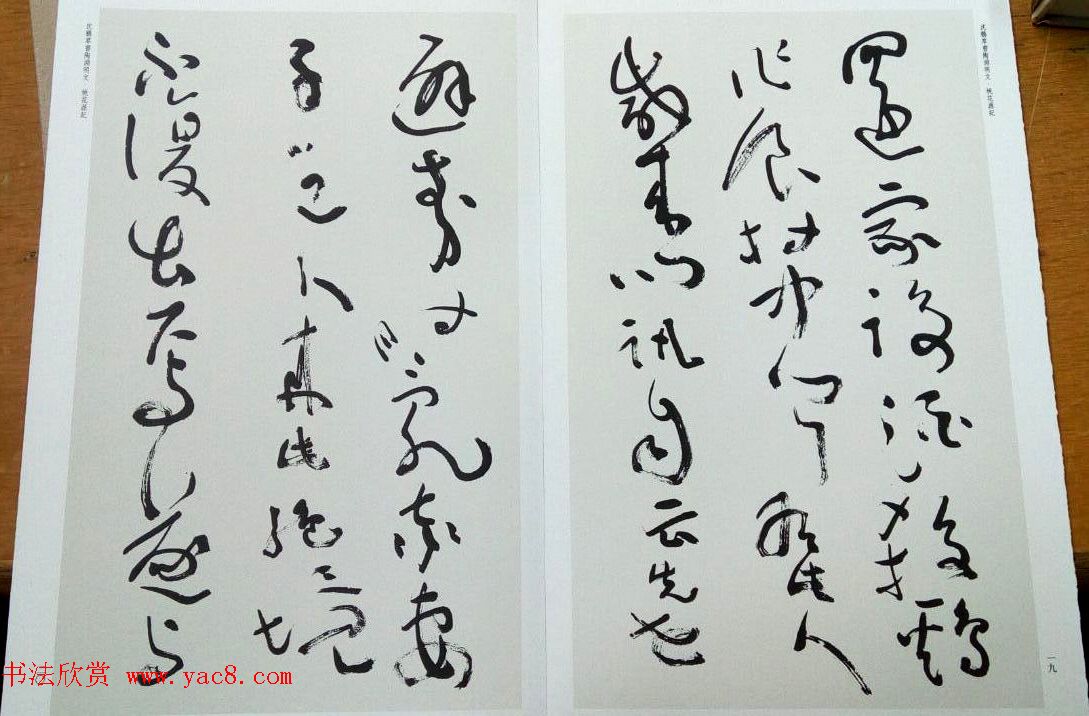 沈鵬草書陶淵明文·桃花源記
還家設酒殺鷄
作食村中聞有此人
咸來問訊自云先世
一九
避秦時亂率妻
子邑人來此絕境
不復出焉遂與
沈鵬草書陶淵明文·桃花源記
书法欣赏 www.yac8.com